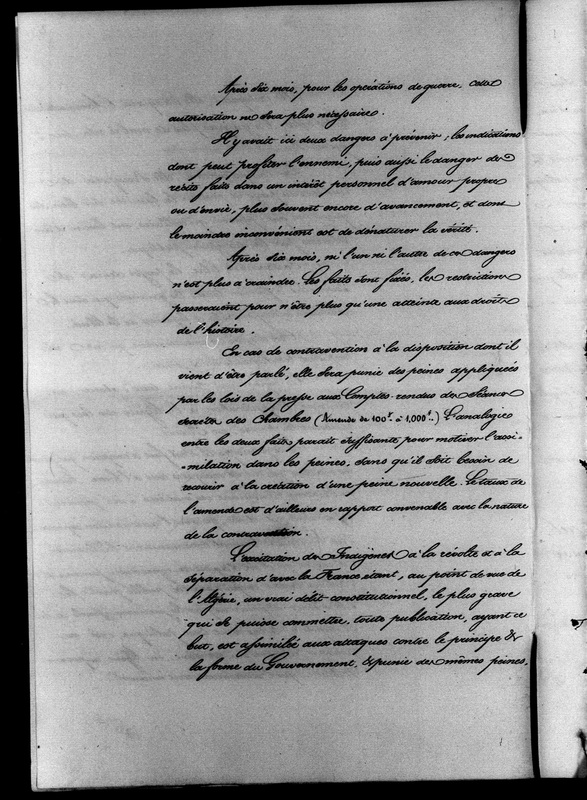 Après six mois, pour les opérations de guerre, cette
autorisation ne sera plus nécessaire.
Il y avait ici deux dangers à prévenir ; les indications
dont peut profiter l'ennemi, puis aussi le danger de
récits faits dans un intérêt personnel d'amour propre
ou d'envie, plus souvent encore d'avancement, et dont
le moindre inconvénient est de dénaturer la vérité.
Après six mois, ni l'un ni l'autre de ces dangers
n'est plus à craindre. Les faits sont fixés, les restrictions
passeraient pour n'être plus qu'une atteinte aux droits
de l'histoire.
En cas de contravention à la disposition dont il
vient d'être parlé, elle sera punie des peines appliquées
par les lois de la presse aux Comptes-rendus des Séances
secrètes des Chambres (Amende de 100f. à 1,000f.) L'analogie
entre les deux faits paraît suffisante pour motiver l'assi-
-milation dans les peines, sans qu'il soit besoin de
recourir à la création d'une peine nouvelle. Le taux de
l'amende est d'ailleurs en rapport convenable avec la nature
de la contravention.
L'excitation des Indigènes à la révolte et à la
séparation d'avec la France étant, au point de vue de
l'Algérie, un vrai délit constitutionnel, le plus grave
qui se puisse commettre, toute publication, ayant ce
but, est assimilée aux attaques contre le principe &
la forme du Gouvernement, & punie des mêmes peines.